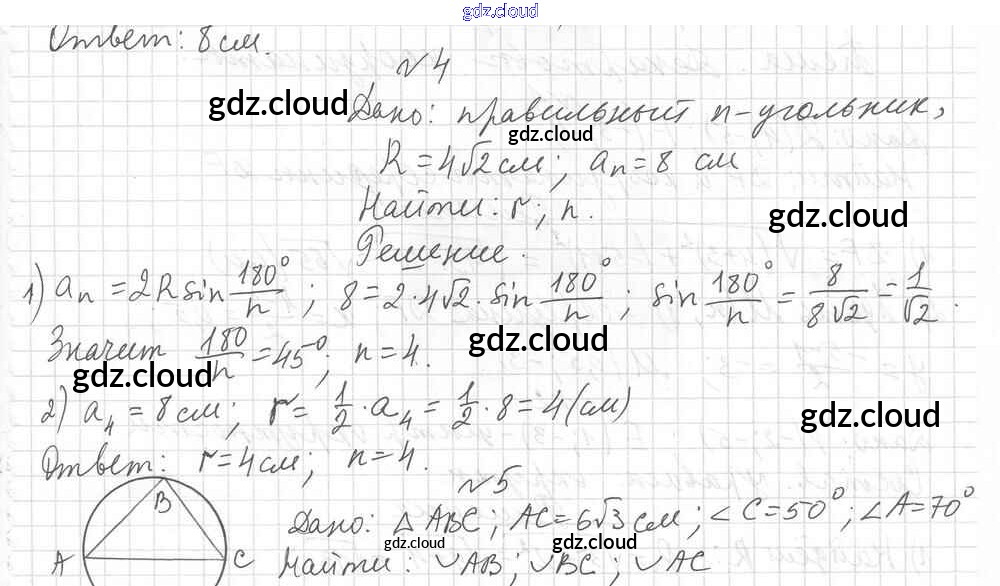 gdz.cloud
Ответ: 8 см.
№4
gdz.cloud
Дано: правильный n-угольник,
gdz.cloud
R = 4√2 см; aₙ = 8 см
Найти: r; n.
gdz.cloud
Решение.
1) aₙ = 2R sin 180°/n; 8 = 2·4√2·sin 180°/n; sin 180°/n = 8/8√2 = 1/√2.
Значит 180/n = 45°; n = 4.
gdz.cloud
gdz.cloud
2) a₄ = 8 см; r = 1/2·a₄ = 1/2·8 = 4 (см)
gdz.cloud
Ответ: r = 4 см; n = 4.
№5
B
Дано: △ABC; AC = 6√3 см; ∠C = 50°; ∠A = 70°
gdz.cloud
gdz.cloud
A
C
Найти: ◡AB; ◡BC; ◡AC